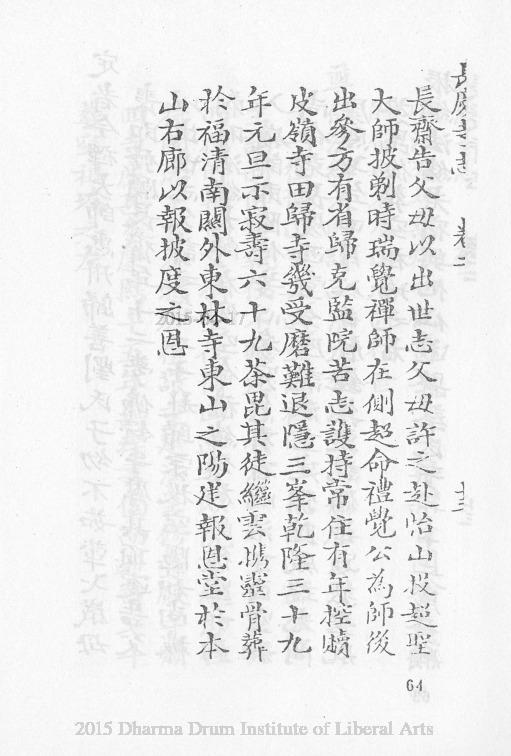 長慶寺志 卷二 十三
長齋告父母以出世志父母許之赴怡山投超聖
大師披剃時瑞覺禪師在側超命禮覺公為師後
出參方有省歸充監院苦志護持常住有年控贖
皮嶺寺田歸寺幾受磨難退隱三峯乾隆三十九
年元旦示寂壽六十九茶毘其徒繼雲携靈骨葬
於福清南關外東林寺東山之陽建報恩堂於本
山右廊以報披度之恩
64
2015 Dharma Drum Institute of Liberal Arts